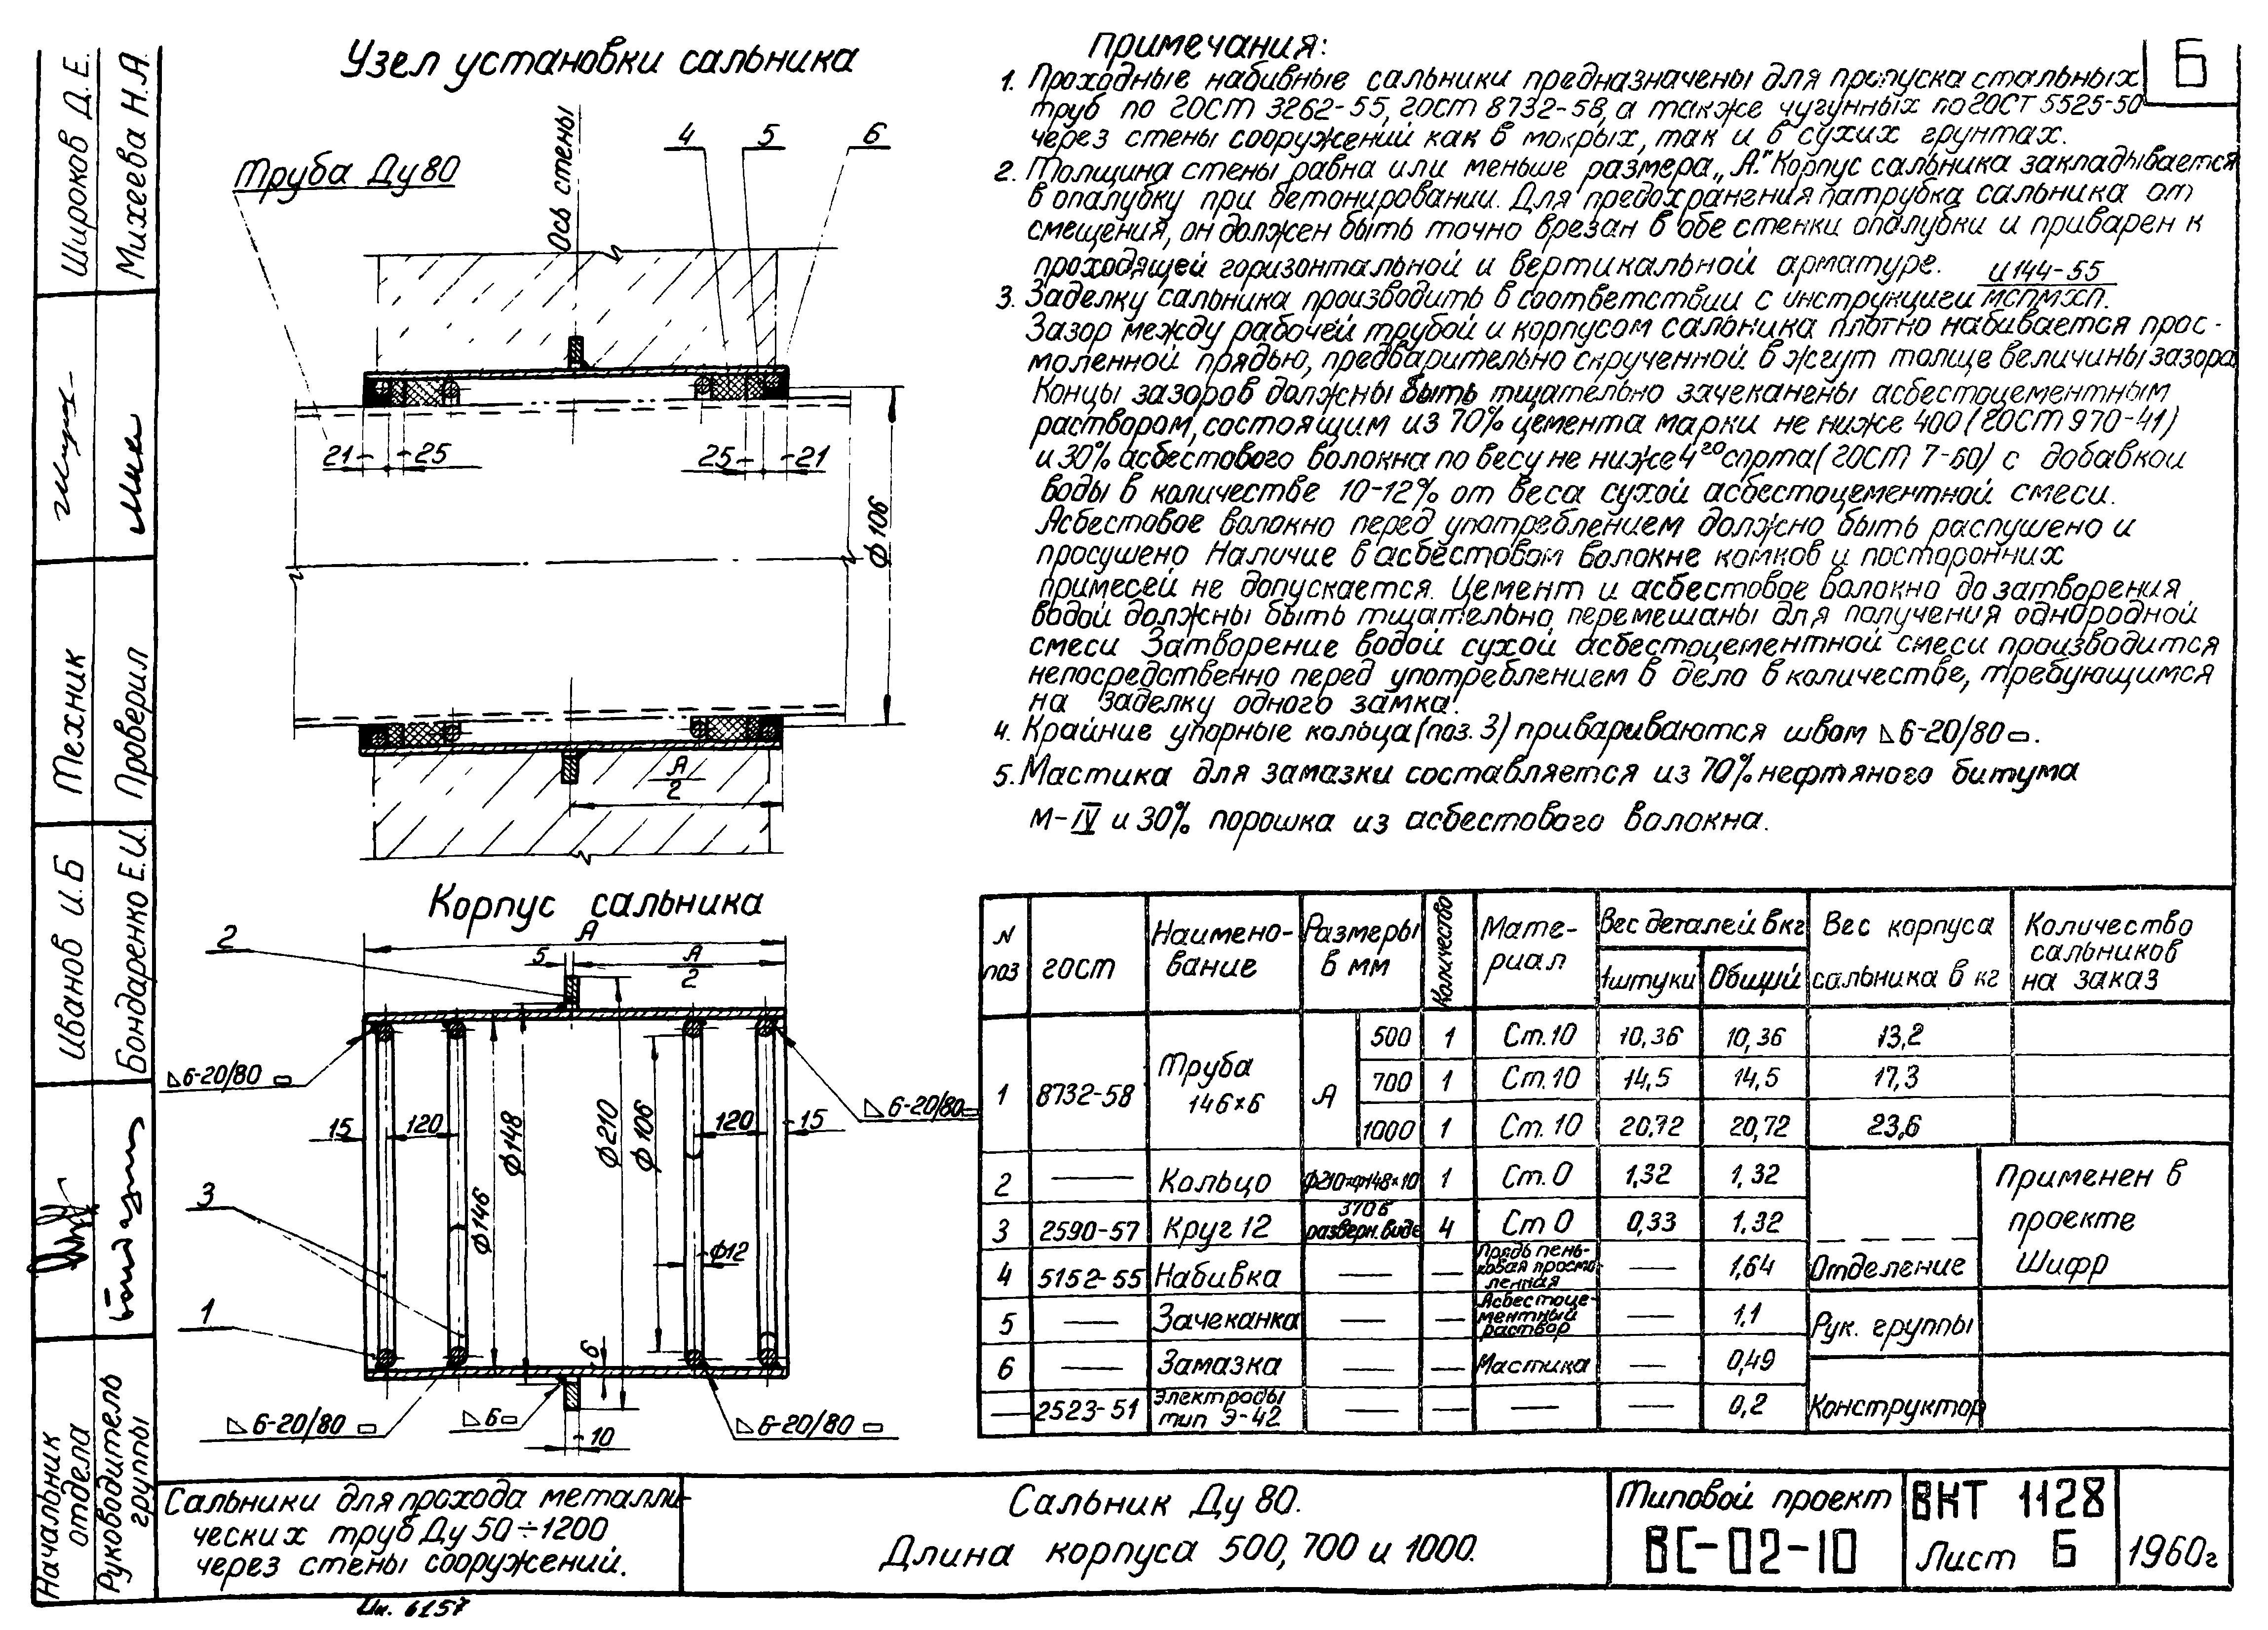 Узел установки сальника
Труба Ду 80
Ось стены
4 5 6
21 25 25 21
ф106
А/2
Корпус сальника
А
5 А/2
2
▷6-20/80
▷6-20/80
15 120 120 15
ф146 ф148 ф210 ф106
ф12
3
1
6
▷6-20/80 ▷6 ▷6-20/80
10
Примечания:
Б
1. Проходные набивные сальники предназначены для пропуска стальных
труб по ГОСТ 3262-55, ГОСТ 8732-58, а также чугунных по ГОСТ 5525-50
через стены сооружений как в мокрых, так и в сухих грунтах.
2. Толщина стены равна или меньше размера „А". Корпус сальника закладывается
в опалубку при бетонировании. Для предохранения патрубка сальника от
смещения, он должен быть точно врезан в обе стенки опалубки и приварен к
проходящей горизонтальной и вертикальной арматуре.
3. Заделку сальника производить в соответствии с инструкцией И144-55/МСПМХП.
Зазор между рабочей трубой и корпусом сальника плотно набивается прос-
моленной прядью, предварительно скрученной в жгут толще величины зазора
Концы зазоров должны быть тщательно зачеканены асбестоцементным
раствором, состоящим из 70% цемента марки не ниже 400 (ГОСТ 970-41)
и 30% асбестового волокна по весу не ниже 4го сорта (ГОСТ 7-60) с добавкой
воды в количестве 10-12% от веса сухой асбестоцементной смеси.
Асбестовое волокно перед употреблением должно быть распушено и
просушено Наличие в асбестовом волокне комков и посторонних
примесей не допускается. Цемент и асбестовое волокно до затворения
водой должны быть тщательно перемешаны для получения однородной
смеси Затворение водой сухой асбестоцементной смеси производится
непосредственно перед употреблением в дело в количестве, требующимся
на заделку одного замка.
4. Крайние упорные кольца (поз. 3) привариваются швом ▷6-20/80.
5. Мастика для замазки составляется из 70% нефтяного битума
М-IV и 30% порошка из асбестового волокна.
N поз ГОСТ Наимено-вание Размеры в мм Количество Мате-риал Вес деталей в кг Вес корпуса сальника в кг Количество сальников на заказ
1 штуки Общий
1 8732-58 Труба 146×6 А 500 1 Ст.10 10,36 10,36 13,2
700 1 Ст.10 14,5 14,5 17,3
1000 1 Ст.10 20,72 20,72 23,6
2 — Кольцо ф210×ф148×10 1 Ст.0 1,32 1,32
3 2590-57 Круг 12 370 в разверн. виде 4 Ст 0 0,33 1.32
4 5152-55 Набивка — — Прядь пень-ковая просмо-ленная — 1,64
5 — Зачеканка — — Асбестоце-ментный раствор — 1,1
6 — Замазка — — Мастика — 0,49
— 2523-51 Электроды тип Э-42 — — — — 0,2
Применен в
проекте
Шифр
Отделение
Рук. группы
Конструктор
Сальники для прохода металли-
ческих труб Ду 50÷1200
через стены сооружений.
Сальник Ду 80.
Длина корпуса 500, 700 и 1000.
Типовой проект
ВС-02-10
ВКТ 1128
Лист Б
1960г
Начальник отдела
Руководитель группы
Иванов И.Б
Бондаренко Е.И.
Техник
Проверил
Широков Д.Е.
Михеева Н.А.
Ин. 6157